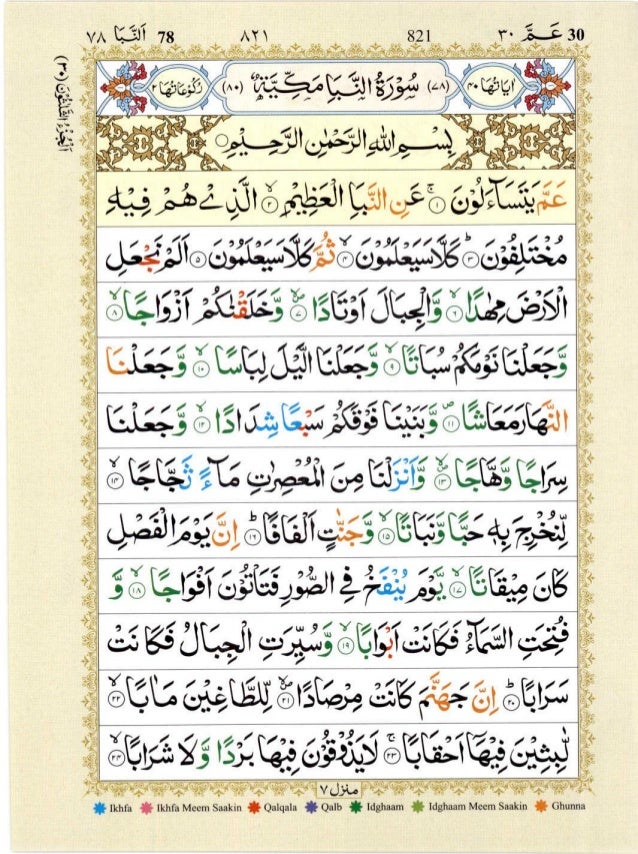 ٧٨ اَلنَّبَا 78 ٨٢١ 821 ٣٠ عَمَّ 30
اَلْجُزْءُ الثَّلٰثُوْنَ (٣٠)
اٰيَاتُهَا ٤٠ (٧٨) سُوْرَةُ النَّبَاِ مَكِّيَّةٌ (٨٠) رُكُوْعَاتُهَا ٢
بِسْمِ اللهِ الرَّحْمٰنِ الرَّحِيْمِ
عَمَّ يَتَسَآءَلُوْنَ ۚ‏﴿١﴾ عَنِ النَّبَاِ الْعَظِيْمِ ۙ‏﴿٢﴾ الَّذِىْ هُمْ فِيْهِ
مُخْتَلِفُوْنَ ؕ‏﴿٣﴾ كَلَّا سَيَعْلَمُوْنَ ۙ‏﴿٤﴾ ثُمَّ كَلَّا سَيَعْلَمُوْنَ ‏﴿٥﴾ اَلَمْ نَجْعَلِ
الْاَرْضَ مِهٰدًا ۙ‏﴿٦﴾ وَّالْجِبَالَ اَوْتَادًا ۪ۙ‏﴿٧﴾ وَّخَلَقْنٰكُمْ اَزْوَاجًا ۙ‏﴿٨﴾
وَّجَعَلْنَا نَوْمَكُمْ سُبَاتًا ۙ‏﴿٩﴾ وَّجَعَلْنَا الَّيْلَ لِبَاسًا ۙ‏﴿١٠﴾ وَّجَعَلْنَا
النَّهَارَ مَعَاشًا ۪‏﴿١١﴾ وَّبَنَيْنَا فَوْقَكُمْ سَبْعًا شِدَادًا ۙ‏﴿١٢﴾ وَّجَعَلْنَا
سِرَاجًا وَّهَّاجًا ۪ۙ‏﴿١٣﴾ وَّاَنْزَلْنَا مِنَ الْمُعْصِرٰتِ مَآءً ثَجَّاجًا ۙ‏﴿١٤﴾
لِّنُخْرِجَ بِهٖ حَبًّا وَّنَبَاتًا ۙ‏﴿١٥﴾ وَّجَنّٰتٍ اَلْفَافًا ؕ‏﴿١٦﴾ اِنَّ يَوْمَ الْفَصْلِ
كَانَ مِيْقَاتًا ۙ‏﴿١٧﴾ يَّوْمَ يُنْفَخُ فِى الصُّوْرِ فَتَاْتُوْنَ اَفْوَاجًا ۙ‏﴿١٨﴾ وَّ
فُتِحَتِ السَّمَآءُ فَكَانَتْ اَبْوَابًا ۙ‏﴿١٩﴾ وَّسُيِّرَتِ الْجِبَالُ فَكَانَتْ
سَرَابًا ؕ‏﴿٢٠﴾ اِنَّ جَهَنَّمَ كَانَتْ مِرْصَادًا ۪ۙ‏﴿٢١﴾ لِّلطَّاغِيْنَ مَاٰبًا ۙ‏﴿٢٢﴾
لّٰبِثِيْنَ فِيْهَاۤ اَحْقَابًا ۚ‏﴿٢٣﴾ لَا يَذُوْقُوْنَ فِيْهَا بَرْدًا وَّلَا شَرَابًا ۙ‏﴿٢٤﴾
منزل ٧
Ikhfa Ikhfa Meem Saakin Qalqala Qalb Idghaam Idghaam Meem Saakin Ghunna